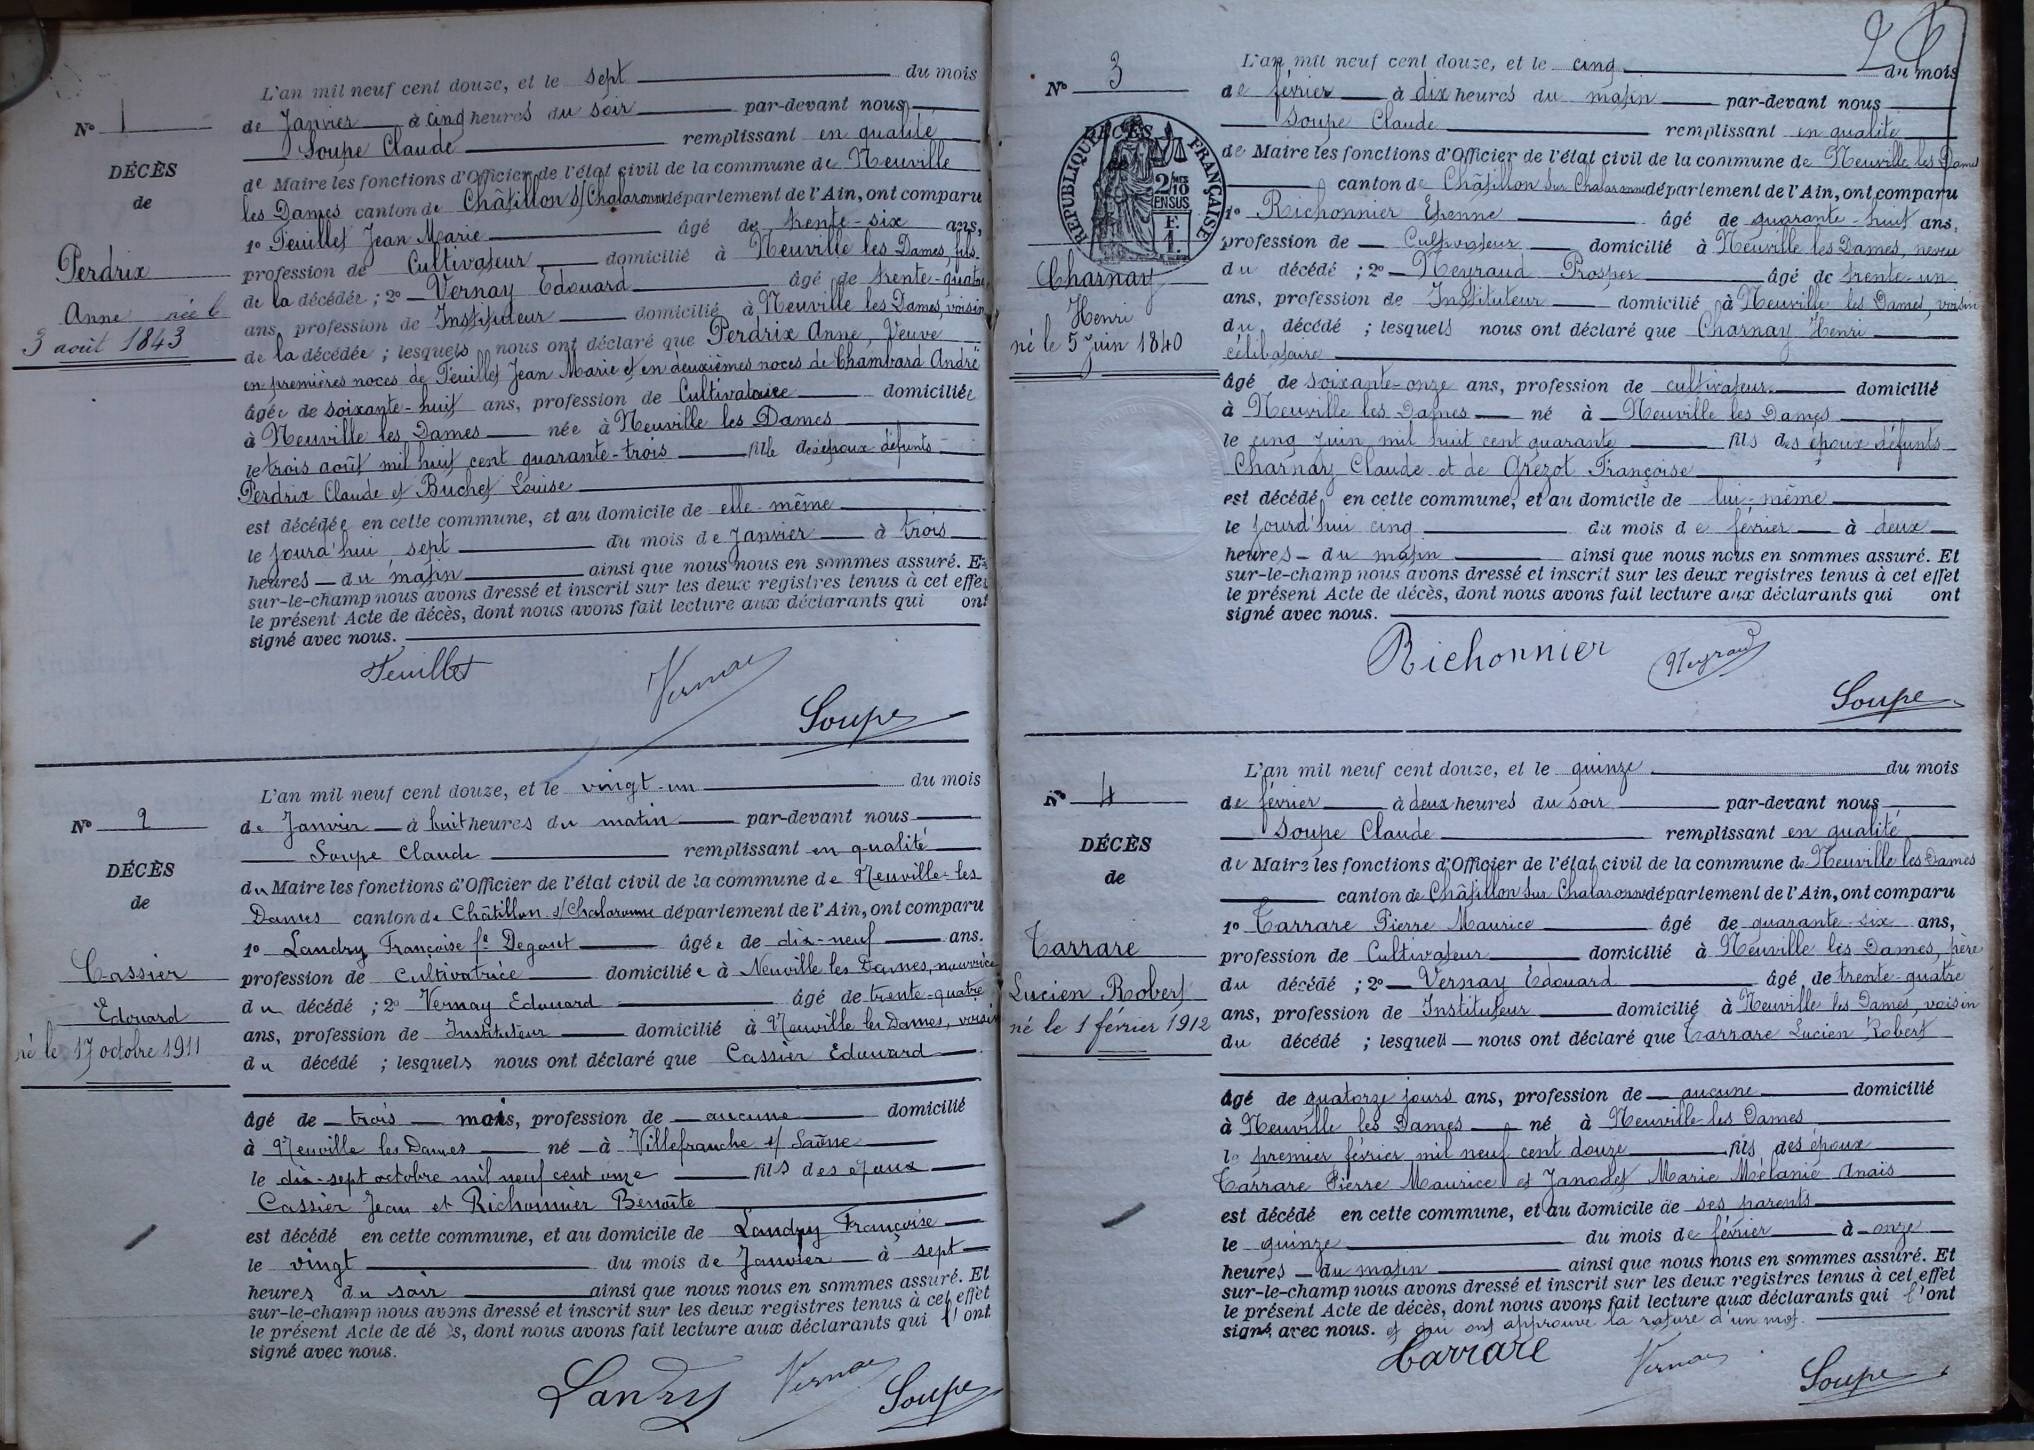 N° 1
DÉCÈS
de
Perdrix
Anne née le
3 août 1843
L'an mil neuf cent douze, et le sept du mois
de Janvier à cinq heures du soir par-devant nous
Soupe Claude remplissant en qualité
de Maire les fonctions d'Officier de l'état civil de la commune de Neuville
les Dames canton de Châtillon s/Chalaronne département de l'Ain, ont comparu
1° Feuillet Jean Marie âgé de trente-six ans,
profession de Cultivateur domicilié à Neuville les Dames, fils
de la décédée ; 2° Vernay Edouard âgé de trente-quatre
ans, profession de Instituteur domicilié à Neuville les Dames, voisin
de la décédée ; lesquels nous ont déclaré que Perdrix Anne, Veuve
en premières noces de Feuillet Jean Marie et en deuxièmes noces de Chambard André
âgée de soixante-huit ans, profession de Cultivatrice domiciliée
à Neuville les Dames née à Neuville les Dames
le trois août mil huit cent quarante-trois fille des époux défunts
Perdrix Claude et Buchet Louise
est décédée en cette commune, et au domicile de elle-même
le jourd'hui sept du mois de Janvier à trois
heures du matin ainsi que nous nous en sommes assuré. Et
sur-le-champ nous avons dressé et inscrit sur les deux registres tenus à cet effet
le présent Acte de décès, dont nous avons fait lecture aux déclarants qui ont
signé avec nous.
Feuillet Vernay
Soupe
N° 2
DÉCÈS
de
Cassier
Edouard
né le 17 octobre 1911
L'an mil neuf cent douze, et le vingt-un du mois
de Janvier à huit heures du matin par-devant nous
Soupe Claude remplissant en qualité
du Maire les fonctions d'Officier de l'état civil de la commune de Neuville-les
Dames canton de Châtillon s/Chalaronne département de l'Ain, ont comparu
1° Landry Françoise fe Degout âgée de dix-neuf ans.
profession de Cultivatrice domiciliée à Neuville les Dames, nourrice
du décédé ; 2° Vernay Edouard âgé de trente-quatre
ans, profession de Instituteur domicilié à Neuville les Dames, voisin
du décédé ; lesquels nous ont déclaré que Cassier Edouard
âgé de trois mois, profession de aucune domicilié
à Neuville les Dames né à Villefranche s/ Saône
le dix-sept octobre mil neuf cent onze fils des époux
Cassier Jean et Richonnier Benoîte
est décédé en cette commune, et au domicile de Landry Françoise
le vingt du mois de Janvier à sept
heures du soir ainsi que nous nous en sommes assuré. Et
sur-le-champ nous avons dressé et inscrit sur les deux registres tenus à cet effet
le présent Acte de dé s, dont nous avons fait lecture aux déclarants qui l'ont
signé avec nous.
Landry Vernay Soupe
N° 3
DÉCÈS
RÉPUBLIQUE FRANÇAISE
2/10 EN SUS
F. 1
Charnay
Henri
né le 5 juin 1840
L'an mil neuf cent douze, et le cinq du mois
de février à dix heures du matin par-devant nous
Soupe Claude remplissant en qualité
de Maire les fonctions d'Officier de l'état civil de la commune de Neuville les Dames
canton de Châtillon sur Chalaronne département de l'Ain, ont comparu
1° Richonnier Etienne âgé de quarante-huit ans,
profession de Cultivateur domicilié à Neuville les Dames, neveu
du décédé ; 2° Neyraud Prosper âgé de trente-un
ans, profession de Instituteur domicilié à Neuville les Dames, voisin
du décédé ; lesquels nous ont déclaré que Charnay Henri
célibataire
âgé de soixante-onze ans, profession de cultivateur domicilié
à Neuville les Dames né à Neuville les Dames
le cinq juin mil huit cent quarante fils des époux défunts
Charnay Claude et de Grézot Françoise
est décédé en cette commune, et au domicile de lui-même
le jourd'hui cinq du mois de février à deux
heures du matin ainsi que nous nous en sommes assuré. Et
sur-le-champ nous avons dressé et inscrit sur les deux registres tenus à cet effet
le présent Acte de décès, dont nous avons fait lecture aux déclarants qui ont
signé avec nous.
Richonnier Neyraud
Soupe
N° 4
DÉCÈS
de
Carrare
Lucien Robert
né le 1 février 1912
L'an mil neuf cent douze, et le quinze du mois
de février à deux heures du soir par-devant nous
Soupe Claude remplissant en qualité
de Maire les fonctions d'Officier de l'état civil de la commune de Neuville les Dames
canton de Châtillon sur Chalaronne département de l'Ain, ont comparu
1° Carrare Pierre Maurice âgé de quarante-six ans,
profession de Cultivateur domicilié à Neuville les Dames, père
du décédé ; 2° Vernay Edouard âgé de trente-quatre
ans, profession de Instituteur domicilié à Neuville les Dames, voisin
du décédé ; lesquels nous ont déclaré que Carrare Lucien Robert
âgé de quatorze jours ans, profession de aucune domicilié
à Neuville les Dames né à Neuville-les Dames
le premier février mil neuf cent douze fils des époux
Carrare Pierre Maurice et Janodet Marie Mélanie Anaïs
est décédé en cette commune, et au domicile de ses parents
le quinze du mois de février à onze
heures du matin ainsi que nous nous en sommes assuré. Et
sur-le-champ nous avons dressé et inscrit sur les deux registres tenus à cet effet
le présent Acte de décès, dont nous avons fait lecture aux déclarants qui l'ont
signé avec nous. et qui ont approuvé la rature d'un mot.
Carrare Vernay Soupe